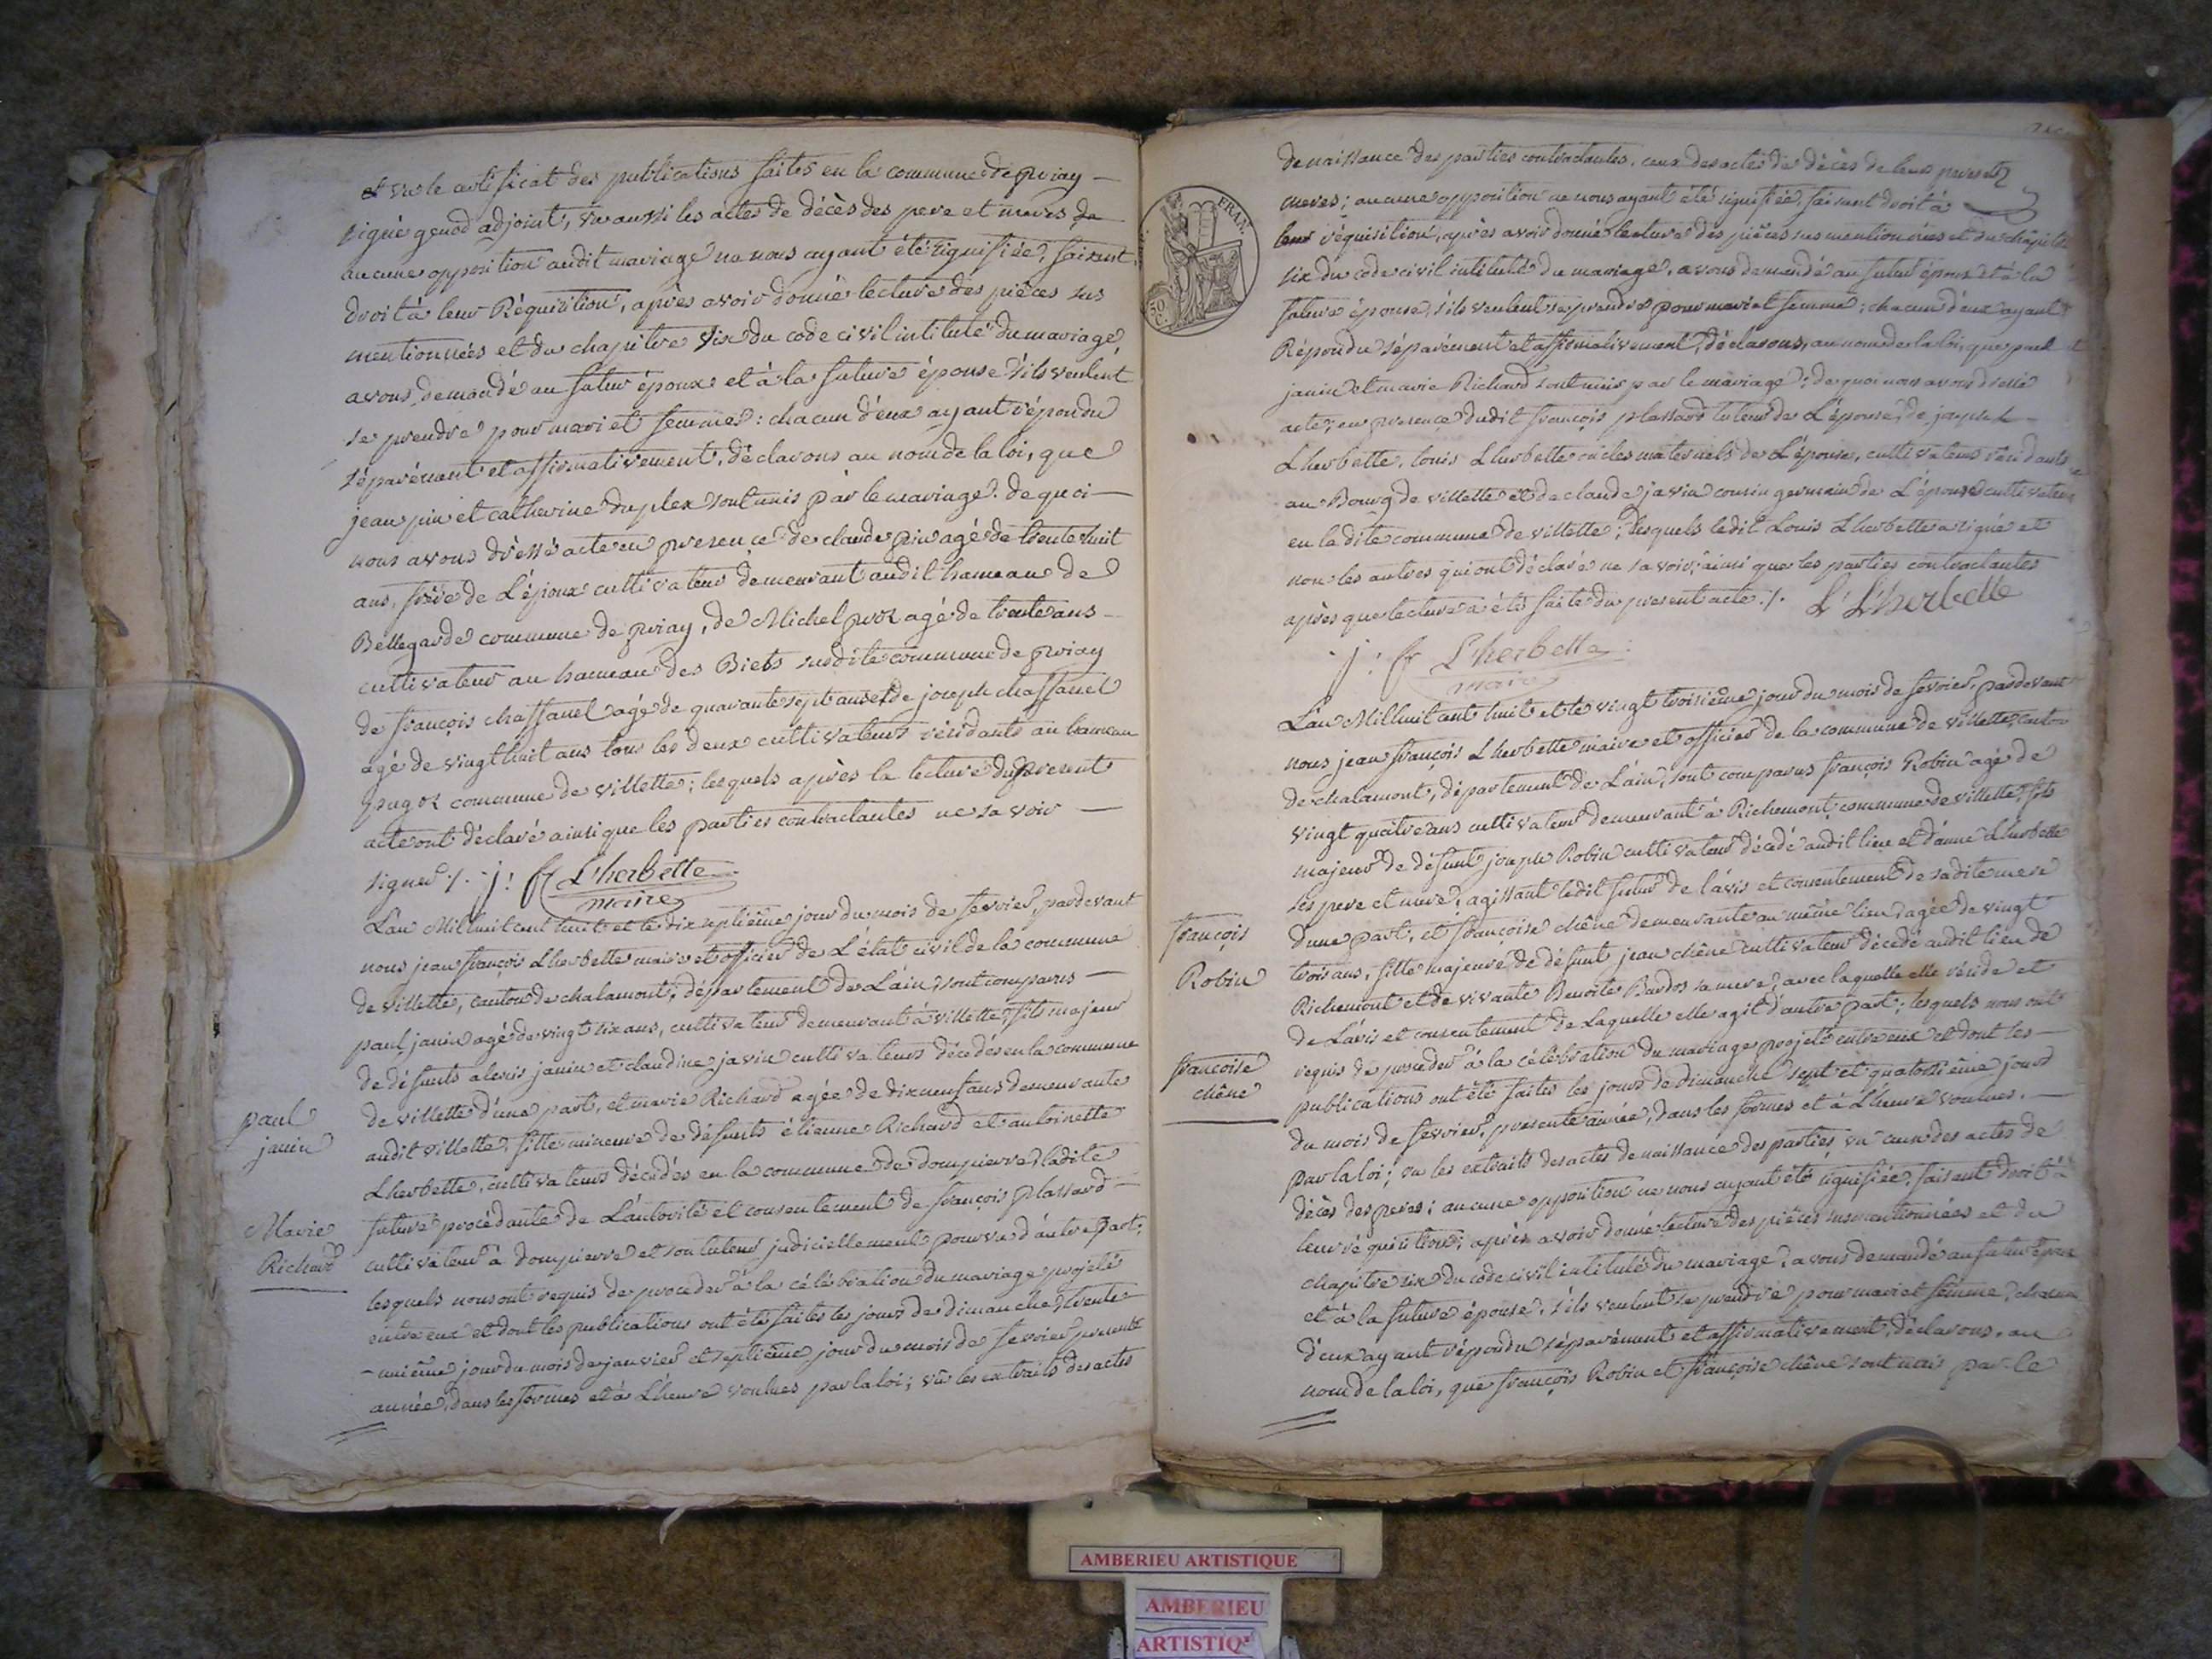 et vu le certificat des publications faites en la commune de priay
signé genod adjoint, vu aussi les actes de décès des pere et meres de
aucune opposition audit mariage ne nous ayant été signifiée, faisant
droit à leur Réquisition, après avoir donné lecture des pièces sus
mentionnées et du chapitre Six du code civil intitulé du mariage
avons demandé au futur époux et à la future épouse s'ils veulent
se prendre pour mari et femme : chacun d'eux ayant répondu
séparément et affirmativement, déclarons au nom de la loi, que
jean pin et catherine duplex sont unis par le mariage. de quoi
nous avons dressé acte en presence de claude pin agé de trente huit
ans, frère de L'époux cultivateur demeurant audit hameau de
Bellegarde commune de priay, de Michel agé de trente ans
cultivateur au hameau des Biets susdite commune de priay
de françois chaffanel agé de quarante sept ans et de joseph chaffanel
agé de vingt huit ans tous les deux cultivateurs résidants au hameau
commune de villette ; lesquels après la lecture du present
acte ont déclaré ainsi que les parties contractantes ne savoir
signer ./. j : f L'herbette
maire
L'an Mil huit cent huit et le dix septième jour du mois de fevrier, pardevant
nous jean françois Lherbette maire et officier de L'état civil de la commune
de villette, canton de chalamont, département de L'ain, sont comparus
paul janin agé de vingt six ans, cultivateur demeurant à villette, fils majeur
de défunts alexis janin et claudine javin cultivateurs décedés en la commune
paul
janin
de villette d'une part, et marie Richard agée de dix neuf ans demeurante
audit villette, fille mineure de défunts étienne Richard et antoinette
Lherbette, cultivateurs décédés en la commune de dompierre, ladite
Marie
Richard
future procédante de L'autorité et consentement de françois plassard
cultivateur à dompierre et son tuteur judiciellement pourvu d'autre part ;
lesquels nous ont requis de proceder à la célébration du mariage projeté
entre eux et dont les publications ont été faites les jours de dimanche, trente
unième jour du mois de janvier et septième jour du mois de fevrier presente
année, dans les formes et à L'heure voulues par la loi ; vu les extraits des actes
FRAN
50
C.
de naissance des parties contractantes, ceux des actes de décès de leurs peres et
meres ; aucune opposition ne nous ayant été signifiée, faisant droit à
leur réquisition, après avoir donné lecture des pièces sus mentionnées et du chapitre
six du code civil intitulé du mariage, avons demandé au futur époux et à la
future épouse, s'ils veulent se prendre pour mari et femme ; chacun d'eux ayant
Répondu séparément et affirmativement, déclarons, au nom de la loi, que paul
janin et marie Richard sont unis par le mariage : de quoi nous avons dressé
acte ; en presence dudit françois plassard tuteur de L'épouse, de joseph
Lherbette, louis Lherbette oncles maternels de L'épouse, cultivateurs résidants
au Bourg de villette et de claude javin cousin germain de L'époux cultivateur
en la dite commune de villette ; desquels ledit Louis Lherbette a signé et
non les autres qui ont déclaré ne savoir, ainsi que les parties contractantes
après que lecture a été faite du present acte ./. L L'herbette
j : f L'herbette
maire
L'an Mil huit cent huit et le vingt troisième jour du mois de fevrier, pardevant
nous jean françois Lherbette maire et officier de la commune de villette, canton
de chalamont, département de L'ain, sont comparus françois Robin agé de
vingt quatre ans cultivateur demeurant à Richemont commune de villette, fils
majeur de défunt joseph Robin cultivateur décédé audit lieu et d'anne Lherbette
ses pere et mere ; agissant ledit futur de l'avis et consentement de sadite mere
françois
Robin
d'une part, et françoise chêne demeurante au même lieu agée de vingt
trois ans, fille majeure de défunt jean chêne cultivateur décédé audit lieu de
Richemont et de vivante Benoite Bardos sa mere, avec laquelle elle réside et
de L'avis et consentement de Laquelle elle agit d'autre part ; lesquels nous ont
françoise
chêne
requis de proceder à la célébration du mariage projeté entre eux et dont les
publications ont été faites les jours de dimanche sept et quatorzième jours
du mois de fevrier, presente année, dans les formes et à L'heure voulues.
par la loi ; vu les extraits des actes de naissance des parties, vu ceux des actes de
décès des peres ; aucune opposition ne nous ayant été signifiée, faisant droit à
leur réquisition ; après avoir donné lecture des pièces sus mentionnées et du
chapitre six du code civil intitulé du mariage, avons demandé au futur époux
et à la future épouse, s'ils veulent se prendre pour mari et femme, chacun
d'eux ayant répondu séparément et affirmativement, déclarons, au
nom de la loi, que françois Robin et françoise chêne sont unis par le
AMBERIEU ARTISTIQUE
AMBERIEU
ARTISTIQ